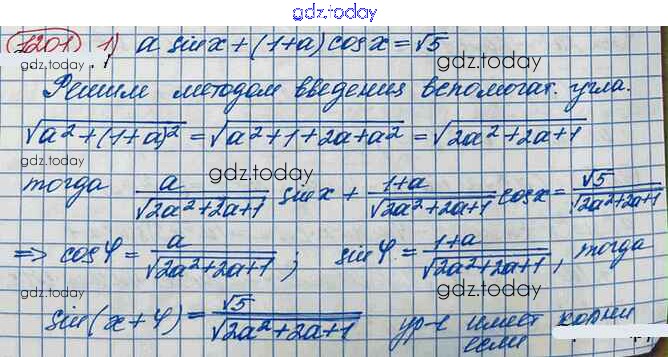 gdz.today
1201. 1) a sin x + (1+a) cos x = √5
gdz.today
Решим методом введения вспомогат. угла.
√(a²+(1+a)²) = √(a²+1+2a+a²) = √(2a²+2a+1)
gdz.today
тогда a/√(2a²+2a+1) sin x + 1+a/√(2a²+2a+1) cos x = √5/√(2a²+2a+1)
gdz.today
⇒ cos φ = a/√(2a²+2a+1) ; sin φ = 1+a/√(2a²+2a+1), тогда
gdz.today
sin(x+φ) = √5/√(2a²+2a+1) ур-е имеет корни
если